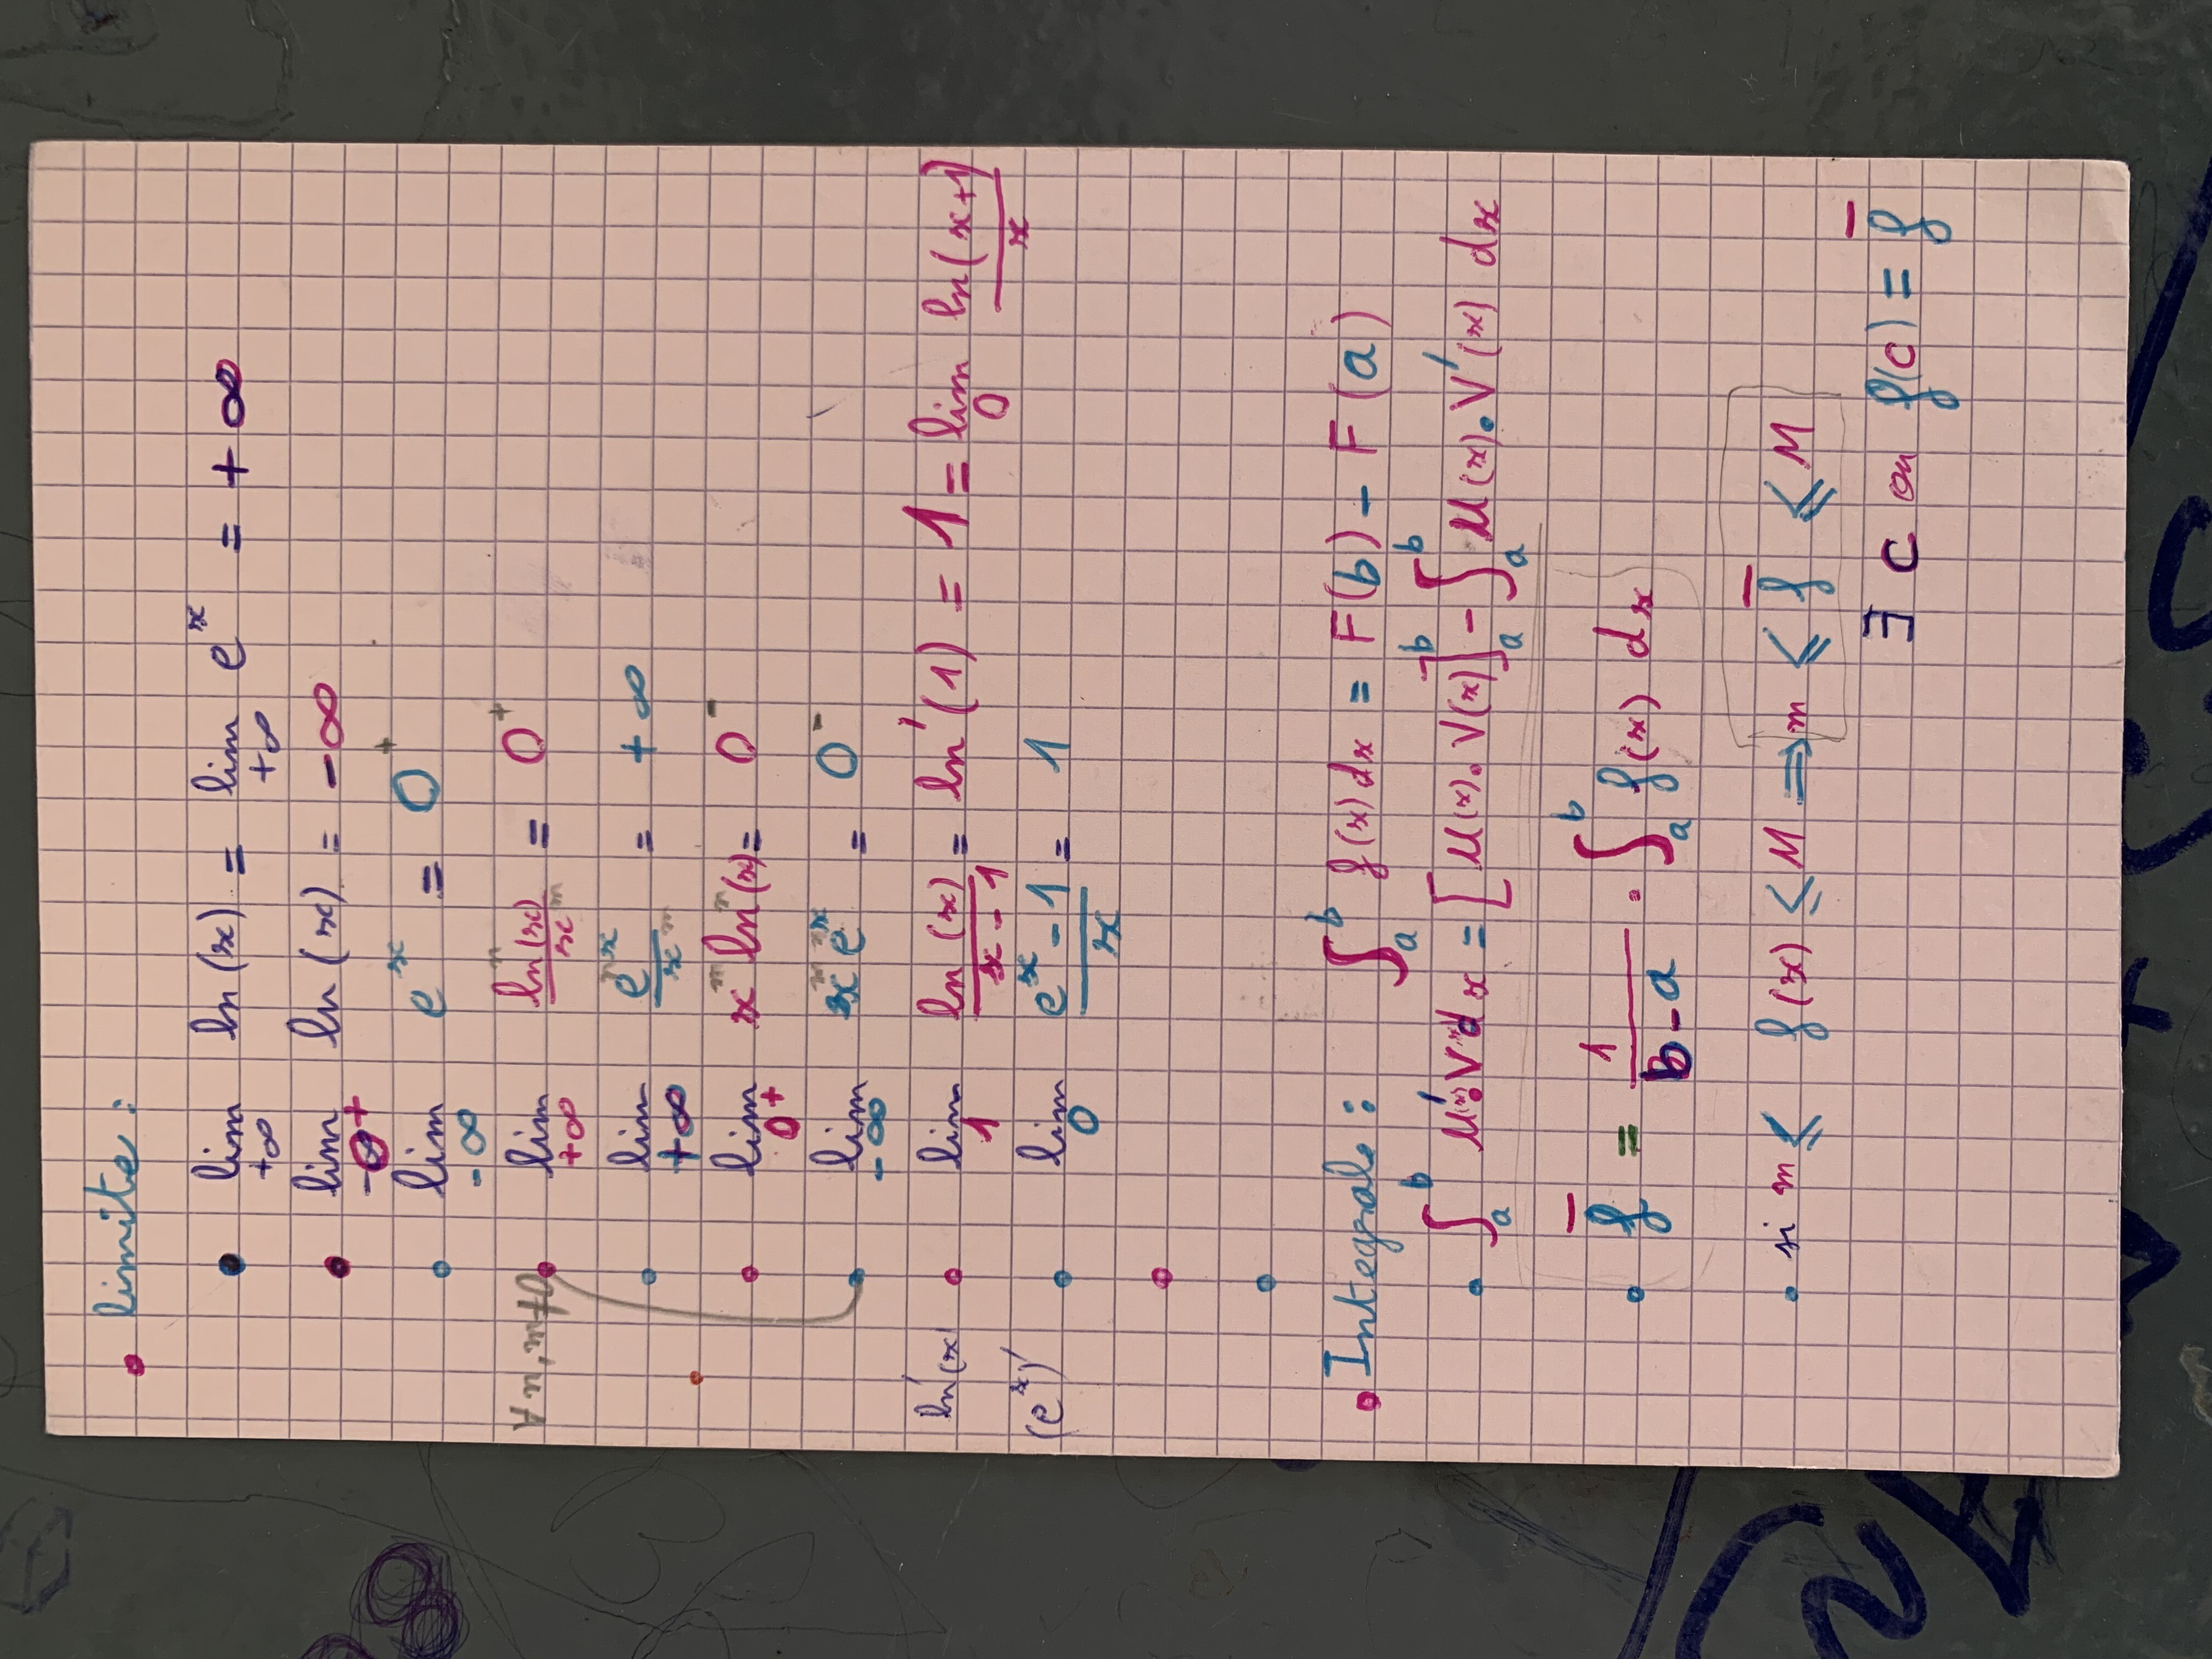 • limite :
• lim +∞ ln(x) = lim +∞ e^x = +∞
• lim 0+ ln(x) = -∞
• lim -∞ e^x = 0+
• lim +∞ ln^n(x)/x^m = 0+
• lim +∞ e^nx/x^m = +∞
• lim 0+ x^m ln^n(x) = 0-
• lim -∞ x^m e^nx = 0-
ln'(x) • lim 1 ln(x)/(x-1) = ln'(1) = 1 = lim 0 ln(x+1)/x
(e^x)' • lim 0 (e^x - 1)/x = 1
•
•
• Integrale : ∫_a^b f(x) dx = F(b) - F(a)
• ∫_a^b u'(x).V(x) dx = [u(x).V(x)]_a^b - ∫_a^b u(x).V'(x) dx
• f̄ = 1/(b-a) . ∫_a^b f(x) dx
• si m ⩽ f(x) ⩽ M ⟹ m ⩽ f̄ ⩽ M
∃ c ou f(c) = f̄